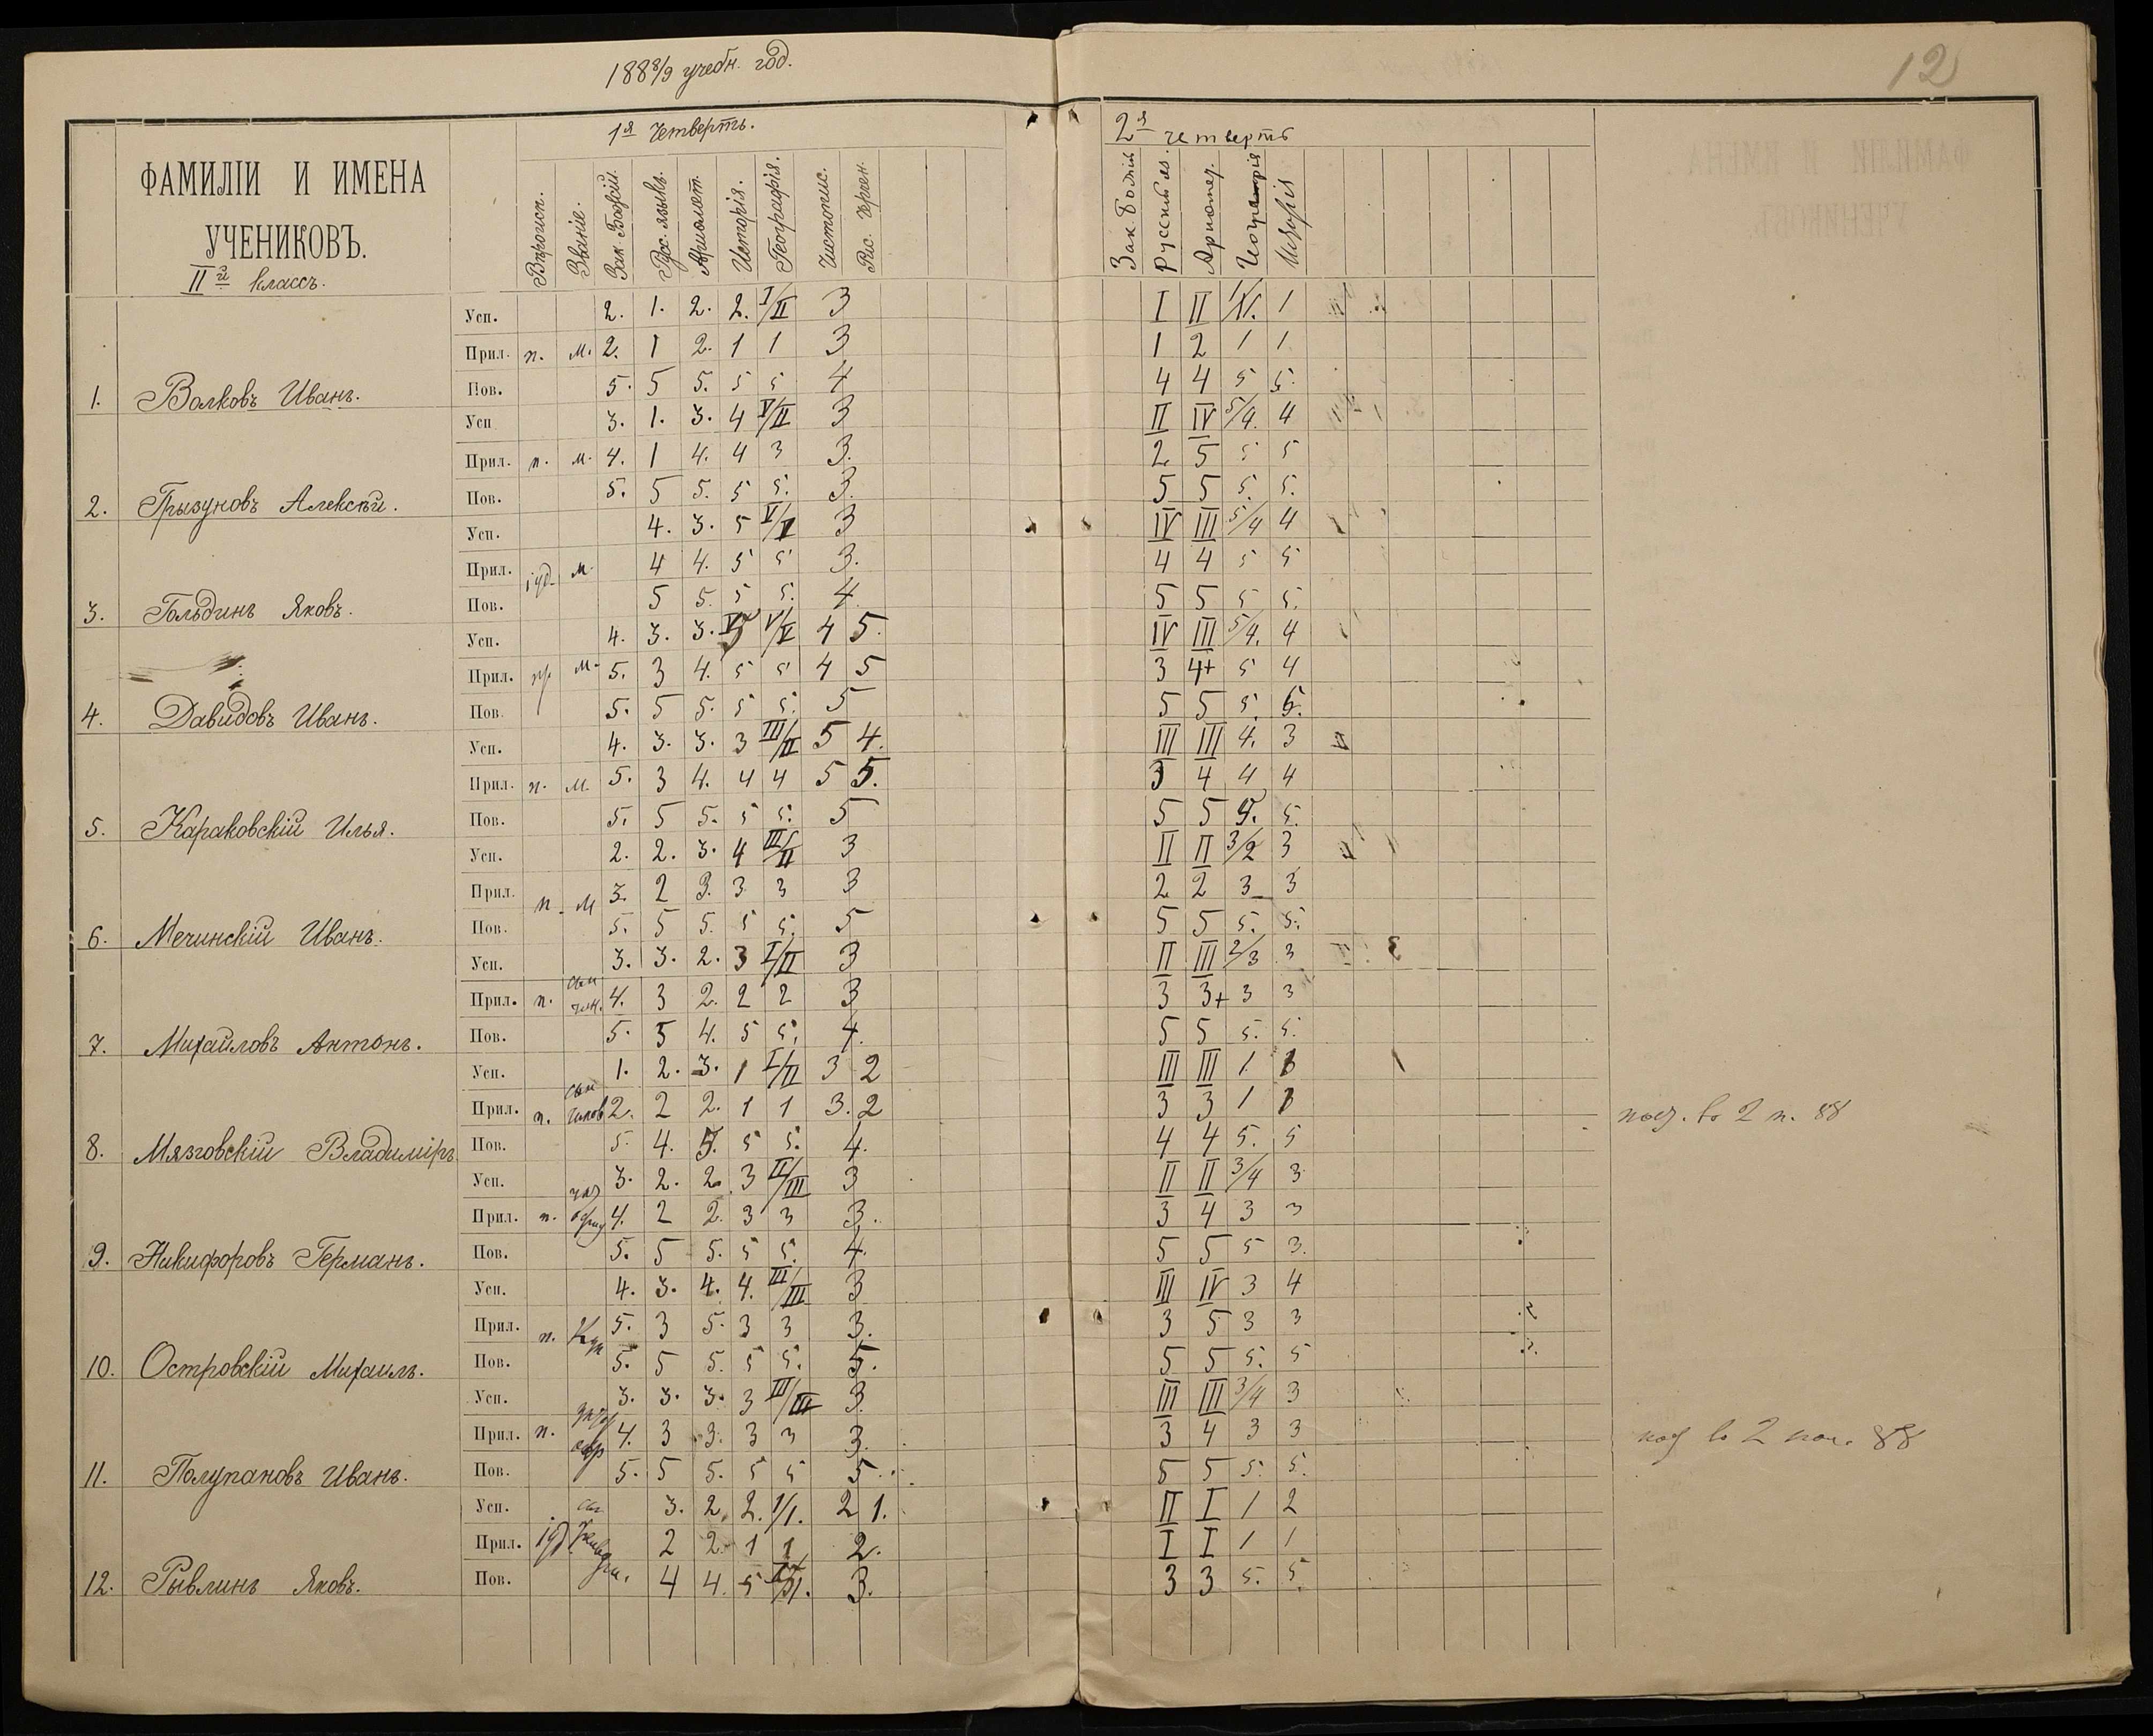 188 8/9 учебн. год.
12
ФАМИЛІИ И ИМЕНА
УЧЕНИКОВЪ.
IIй классъ.
1я Четверть.
Вѣроисп. Званіе. Зак. Божій. Рус. языкъ. Ариѳмет. Исторія. Географія. Чистопис. Рис. Черчен.
2я четверть
Зак Божій Русскій яз. Ариѳмет. Исторія
Усп. 2. 1. 2. 2. I/II 3 I II 1
Прил. п. м. 2. 1 2. 1 1 3 1 2 1 1
1. Волковъ Иванъ. Пов. 5. 5 5. 5 5 4 4 4 5 5.
Усп 3. 1. 3. 4 V/II 3 II IV 5/4. 4
Прил. п. м. 4. 1 4. 4 3 3. 2 5 5 5
2. Грызуновъ Алексѣй. Пов. 5. 5 5. 5 5. 3. 5 5 5. 5.
Усп. 4. 3. 5 V/V 3 IV III 5/4 4
Прил. іуд. м. 4 4. 5 5 3. 4 4 5 5
3. Гольдинъ Яковъ. Пов. 5 5. 5 5. 4. 5 5 5 5.
Усп. 4. 3. 3. V/V 4 5. IV III 5/4. 4
Прил. м. 5. 3 4. 5 5 4 5 3 4+ 5 4
4. Давидовъ Иванъ. Пов. 5. 5 5. 5 5. 5 5 5 5. 5.
Усп. 4. 3. 3. 3 III/II 5 4. III III 4. 3
Прил. п. м. 5. 3 4. 4 4 5 5. 3 4 4 4
5. Караковскій Илья. Пов. 5. 5 5. 5 5. 5 5 5 5. 5.
Усп. 2. 2. 3. 4 III/II 3 II II 3/2 3
Прил. п. м 3. 2 3. 3 3 3 2 2 3 3
6. Мечинскій Иванъ. Пов. 5. 5 5. 5 5. 5 5 5 5. 5.
Усп. 3. 3. 2. 3 I/II 3 II III 2/3 3
Прил. п. сын чин. 4. 3 2. 2 2 3 3 3+ 3 3
7. Михайловъ Антонъ. Пов. 5. 5 4. 5 5. 4. 5 5 5. 5.
Усп. 1. 2. 3. 1 I/II 3 2 III III 1.
Прил. п. сын чинов 2. 2 2. 1 1 3. 2 3 3 1
8. Мязговскій Владиміръ Пов. 5. 4. 5. 5 5. 4. 4 4 5. 5
Усп. 3. 2. 2. 3 II/III 3 II II 3/4 3
Прил. п. 4. 2 2. 3 3 3. 3 4 3 3
9. Никифоровъ Германъ. Пов. 5. 5 5. 5 5. 4. 5 5 5 3.
Усп. 4. 3. 4. 4. III/III 3 III IV 3 4
Прил. п. Куп 5. 3 5. 3 3 3. 3 5 3 3
10. Островскій Михаилъ. Пов. 5. 5 5. 5 5. 5. 5 5 5. 5
Усп. 3. 3. 3. 3 III/III 3. III III 3/4 3
Прил. п. 4. 3 3. 3 3 3. 3 4 3 3
11. Полупановъ Иванъ. Пов. 5. 5 5. 5 5 5 5 5 5. 5.
Усп. 3. 2. 2. 1/1. 2 1. II I 1 2
Прил. іуд. 2 2. 1 1 2. I I 1 1
12. Рывлинъ Яковъ. Пов. 4 4. 5 3. 3 3 5. 5.
во 2 п. 88
во 2 88